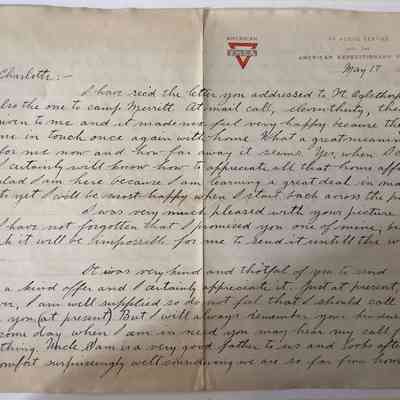 AMERICAN
YMCA
ON ACTIVE SERVICE
WITH THE
AMERICAN EXPEDITIONARY
May 17
Charlotte:-
I have rec'd the letter you addressed to Ft. Oglethorp
also the one to camp Merritt. At mail call, eleven thirty, the
given to me and it made me feel very happy because the
me in touch once again with home. What a great meaning
for me now and how far away it seems. Yes, when I
I certainly will know how to appreciate all that home aff
glad I am here because I am learning a great deal in ma
yet I will be most happy when I start back across the
I was very much pleased with your picture
I have not forgotten that I promised you one of mine, b
it will be impossible for me to send it until the w
It was very kind and tho'tful of you to send
a kind offer and I certainly appreciate it. Just at present,
I am well supplied so do not feel that I should call
you (at present). But I will always remember your kindne
some day when I am in need you may hear my call f
thing. Uncle Sam is a very good father to us and looks aft
comfort surprisingly well considering we are so far from hom